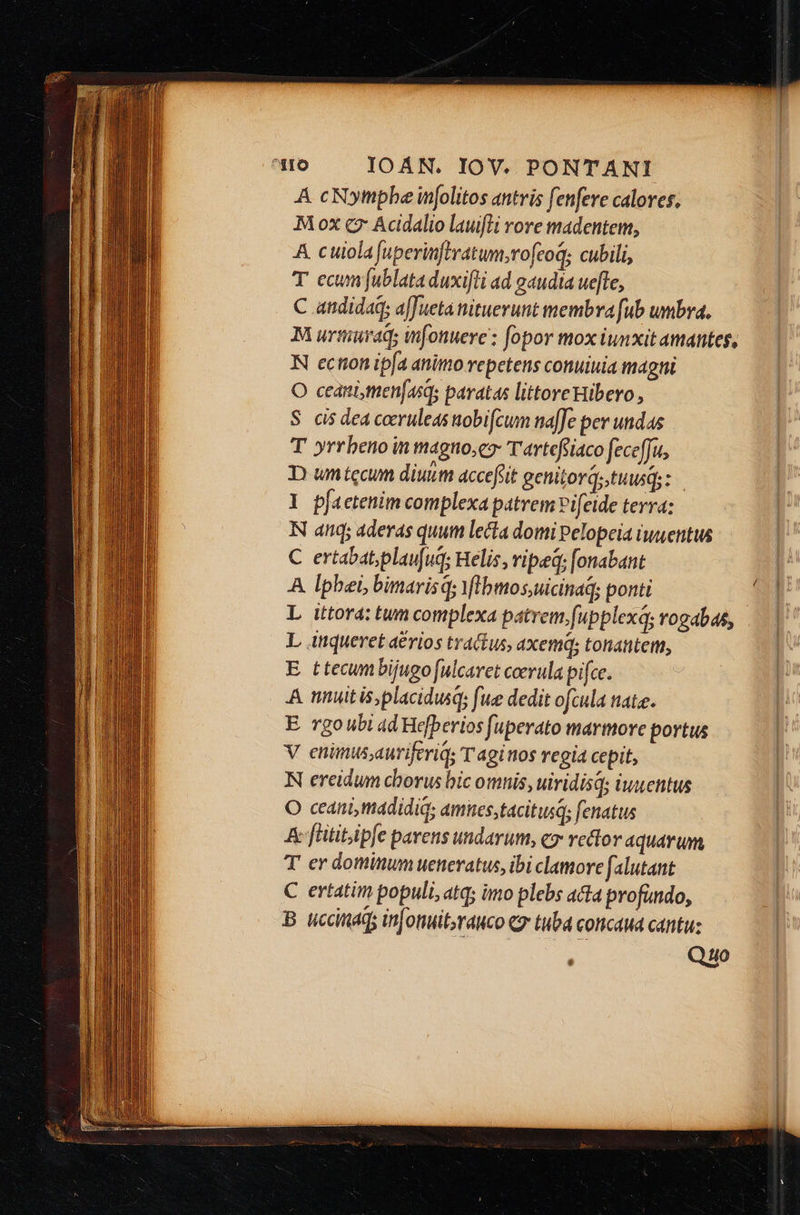 110 IOAN. IOV. PONTANI
A c Nymphæ inſolitos antris ſenſere calores.
M ox & Acidalio lauiſti rore madentem,
A c uiola ſuperinſtratum,roſeoq́; cubili,
T ecum ſublata duxiſti ad gaudia ueſte,
C andidaq́; aſſueta nituerunt membra ſub umbra.
M urmuraq́; inſonuere: ſopor mox iunxit amantes.
N ec non ipſa animo repetens conuiuia magni
O ceani,menſasq́; paratas littore Hibero,
S cis dea cœruleas nobiſcum naſſe per undas
T yrrheno in magno,& Tarteſsiaco ſeceſſu,
D um tecum diuûm acceſsit genitorq́;,tuusq́;:
I pſa etenim complexa patrem Piſeide terra:
N anq; aderas quum lecta domi Pelopeia iuuentus
C ertabat,plauſuq́; Helis, ripæq́; ſonabant
A lphei, bimarisq́; Yſthmos,uicinaq́; ponti
L ittora: tum complexa patrem,ſupplexq́; rogabas,
L inqueret aërios tractus, axemq́; tonantem,
E t tecum bijugo ſulcaret cœrula piſce.
A nnuit is,placidusq́; ſuæ dedit oſcula natæ.
E rgo ubi ad Heſperios ſuperato marmore portus
V enimus,auriferiq́; Tagi nos regia cepit,
N ereidum chorus hic omnis, uiridisq́; iuuentus
O ceani,madidiq́; amnes,tacitusq́; ſenatus
A ſtitit,ipſe parens undarum, & rector aquarum
T er dominum ueneratus, ibi clamore ſalutant
C ertatim populi, atq; imo plebs acta profundo,
B uccinaq́; inſonuit,rauco & tuba concaua cantu:
Quo